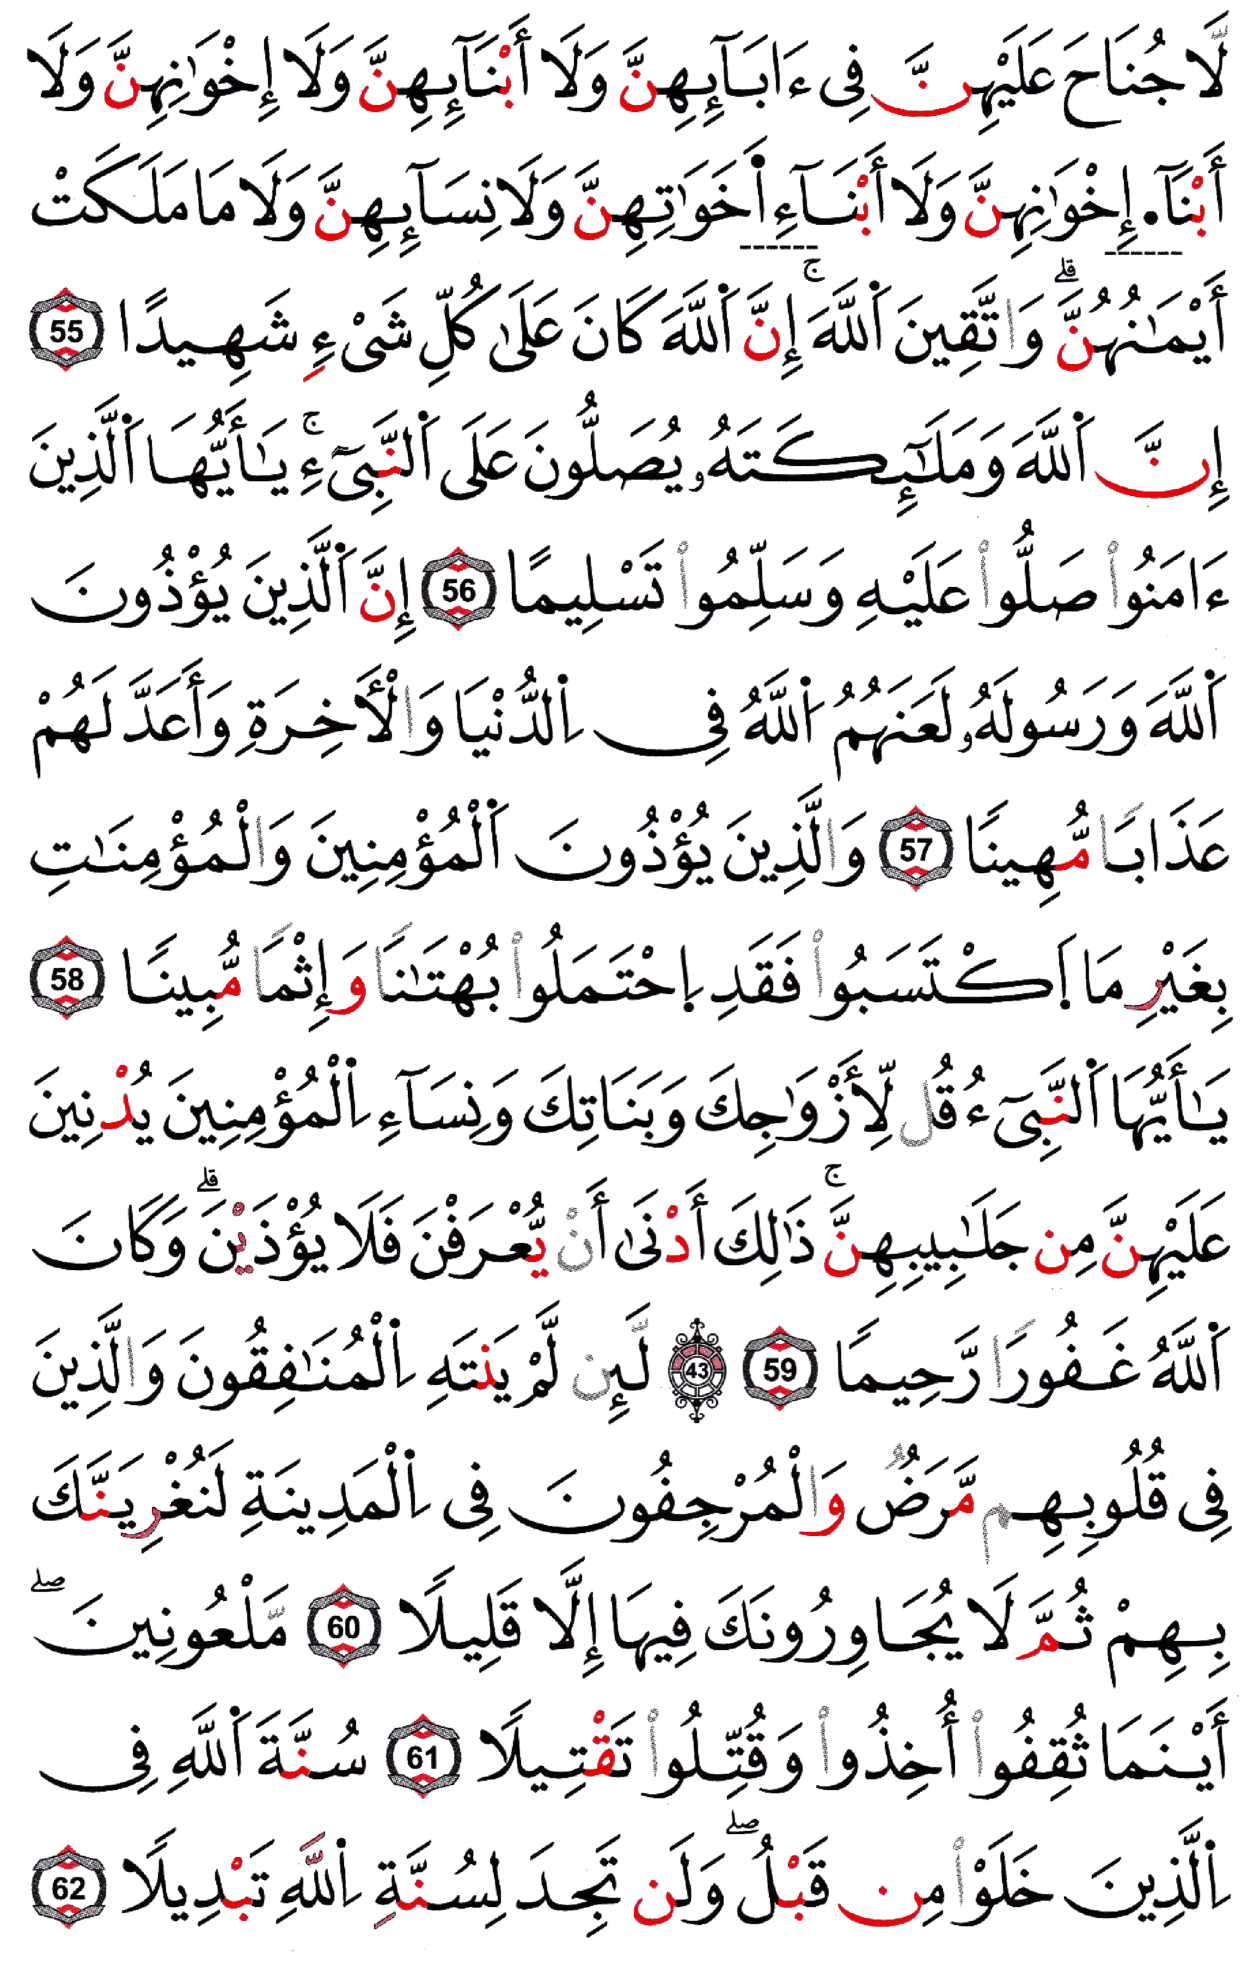 لَّا جُنَاحَ عَلَيْهِنَّ فِى ءَابَآئِهِنَّ وَلَا أَبْنَآئِهِنَّ وَلَا إِخْوَٰنِهِنَّ وَلَا
أَبْنَآءِ اِ۪خْوَٰنِهِنَّ وَلَا أَبْنَآءِ أَ۬خَوَٰتِهِنَّ وَلَا نِسَآئِهِنَّ وَلَا مَا مَلَكَتْ
أَيْمَٰنُهُنَّ ۗ وَاتَّقِينَ اَ۬للَّهَ ۚ إِنَّ اَ۬للَّهَ كَانَ عَلَىٰ كُلِّ شَىْءٍ شَهِيدًا 55
إِنَّ اَ۬للَّهَ وَمَلَٰٓئِكَتَهُۥ يُصَلُّونَ عَلَى اَ۬لنَّبِىٓءِ ۚ يَٰأَيُّهَا اَ۬لَّذِينَ
ءَامَنُواْ صَلُّواْ عَلَيْهِ وَسَلِّمُواْ تَسْلِيمًا 56 إِنَّ اَ۬لَّذِينَ يُؤْذُونَ
اَ۬للَّهَ وَرَسُولَهُۥ لَعَنَهُمُ اُ۬للَّهُ فِى اِ۬لدُّنْيَا وَالْأَخِرَةِ وَأَعَدَّ لَهُمْ
عَذَابًا مُّهِينًا 57 وَالَّذِينَ يُؤْذُونَ اَ۬لْمُؤْمِنِينَ وَالْمُؤْمِنَٰتِ
بِغَيْرِ مَا اَ۪كْتَسَبُواْ فَقَدِ اِ۪حْتَمَلُواْ بُهْتَٰنًا وَإِثْمًا مُّبِينًا 58
يَٰأَيُّهَا اَ۬لنَّبِىٓءُ قُل لِّأَزْوَٰجِكَ وَبَنَاتِكَ وَنِسَآءِ اِ۬لْمُؤْمِنِينَ يُدْنِينَ
عَلَيْهِنَّ مِن جَلَٰبِيبِهِنَّ ۚ ذَٰلِكَ أَدْنَىٰ أَنْ يُّعْرَفْنَ فَلَا يُؤْذَيْنَ ۗ وَكَانَ
اَ۬للَّهُ غَفُورًا رَّحِيمًا 59 43 لَّئِن لَّمْ يَنتَهِ اِ۬لْمُنَٰفِقُونَ وَالَّذِينَ
فِى قُلُوبِهِم مَّرَضٌ وَالْمُرْجِفُونَ فِى اِ۬لْمَدِينَةِ لَنُغْرِيَنَّكَ
بِهِمْ ثُمَّ لَا يُجَاوِرُونَكَ فِيهَا إِلَّا قَلِيلًا 60 مَّلْعُونِينَ ۖ
أَيْنَمَا ثُقِفُواْ أُخِذُواْ وَقُتِّلُواْ تَقْتِيلًا 61 سُنَّةَ اَ۬للَّهِ فِى
اِ۬لَّذِينَ خَلَوْاْ مِن قَبْلُ ۖ وَلَن تَجِدَ لِسُنَّةِ اِ۬للَّهِ تَبْدِيلًا 62